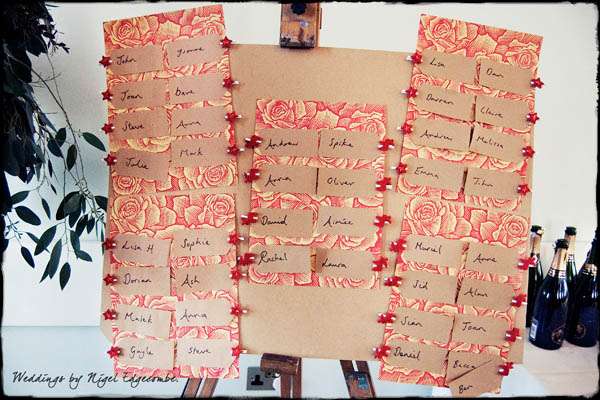 John Yvonne
Joan Dave
Steve Anna
Julie Mark
Lisa H Sophie
Dorian Ash
Malek Anna
Gayle Steve
Andrew Spike
Anna Oliver
David Aimée
Rachel Laura
Lisa Dan
Darren Claire
Andrew Melissa
Emma John
Muriel Anne
Sid Alan
Sian Joan
Daniel Becca
Bar
Weddings by Nigel Edgecombe.